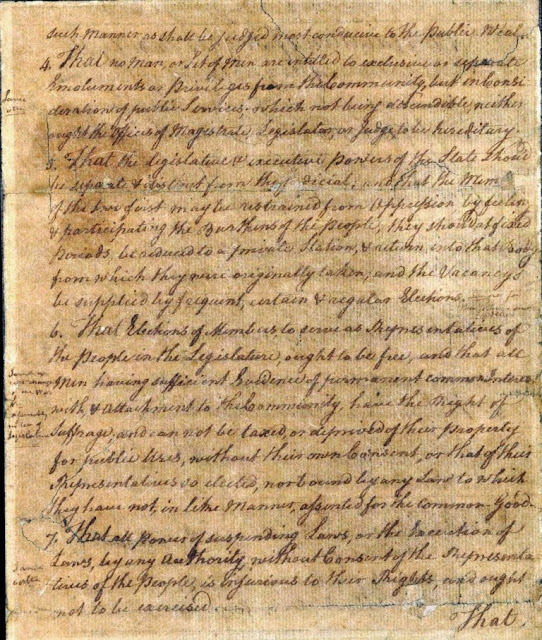 such Manner as shall be judged most conducive to the public Weal.
4. That no Man, or Set of Men are intitled to exclusive or separate
Emoluments or Privileges from the Community, but in Consi
deration of public Services; which not being descendible, neither
ought the Offices of Magistrate, Legislator, or Judge to be hereditary.
5. That the legislative & executive Powers of the State should
be separate & distinct from the judicial; and that the Mem
of the two first may be restrained from Oppression by feeling
& participating the Burthens of the People, they should at fixed
Periods, be reduced to a private Station, & return into that Body
from which they were originally taken; and the Vacancys
be supplied by frequent, certain & regular Elections.
6. That Elections of Members to serve as Representatives of
the People in the Legislature, ought to be free, and that all
Men having sufficient Evidence of permanent common Interest
with & Attachment to the Community, have the Right of
Suffrage, and can not be taxed, or deprived of their Property
for public Uses, without their own Consent, or that of their
Representatives so elected, nor bound by any Law to which
they have not, in like Manner, assented for the common Good.
7. That all Power of suspending Laws, or the Execution of
Laws, by any Authority, without Consent of the Representa
tives of the People, is injurious to their Rights, and ought
not to be exercised
That